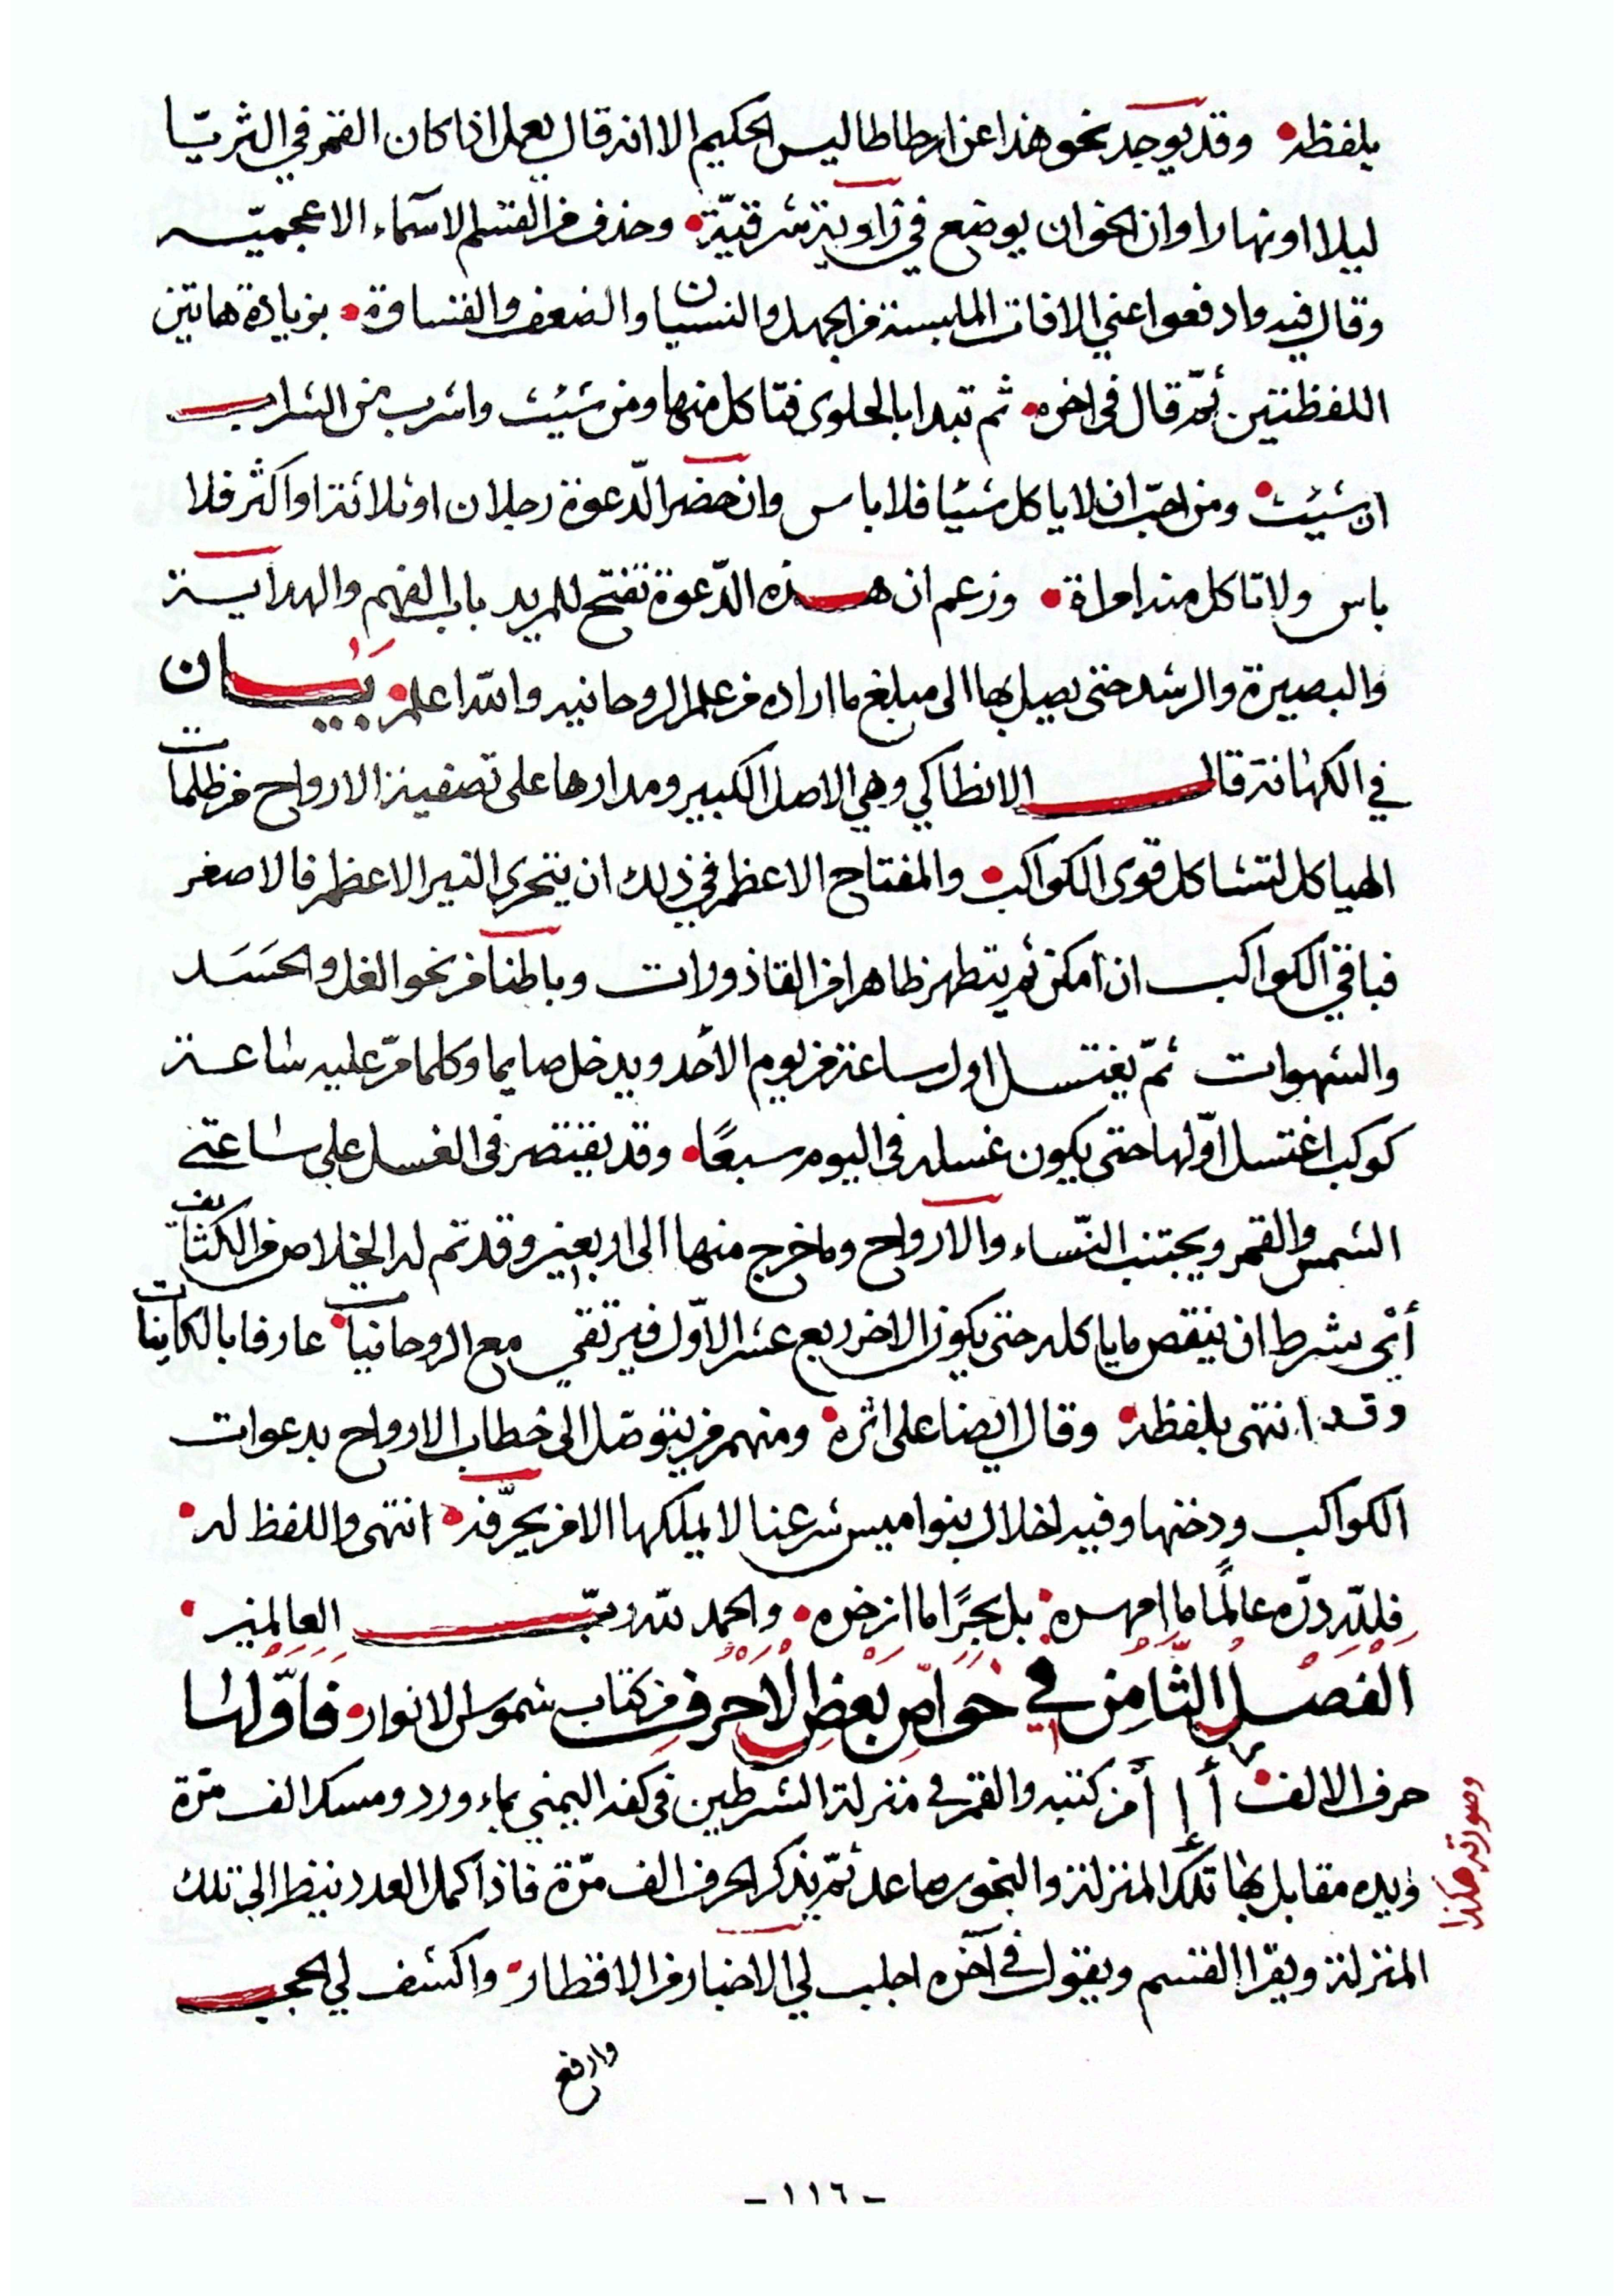 بلفظه • وقد يوجد نحو هذا عن ارطاطاليس الحكيم الا انه قال يعمل اذا كان القمر في الثريّا
ليلا او نهارا وان الخوان يوضع في زاوية شرقيّة • وحذف من القسم الاسماء الاعجميّه
وقال فيه وادفعوا عني الافات الملبسة من الجهل والنسيان والضعف والقساوة • بزيادة هاتين
اللفظتين. ثمّ قال في اخره • ثم تبدا بالحلوى فتاكل منها ومن شيئت واشرب من الشراب
ان شيئت • ومن احبّ ان لا ياكل شيئا فلا باس وان حضر الدّعوة رجلان او ثلاثة او اكثر فلا
باس ولا تاكل منه امراة • وزعم ان هذه الدّعوة تفتح للمريد باب الفهم والهداية
والبصيرة والرشد حتى يصل بها الى مبلغ ما اراده من علم الروحانيه والله اعلم • بَيَان
في الكهانة قال الانطاكي وهي الاصل الكبير ومدارها على تصفية الارواح من ظلمات
الهياكل لتشاكل قوى الكواكب • والمفتاح الاعظم في ذلك ان يتحرى النير الاعظم فالاصغر
فباقي الكواكب ان امكن ثم يتطهر ظاهرا من القاذورات وباطنا من نحو الغل والحَسَد
والشهوات ثمّ يغتسل اول ساعة من يوم الأحد ويدخل صايما وكلما مرّ عليه ساعة
كوكب اغتسل اوّلها حتى يكون غسله في اليوم سبعًا • وقد يقتصر في الغسل على ساعتي
الشمس والقمر ويجتنب النّساء والارواح وما خرج منها الى اربعين وقد تم له الخلاص من الكثائف
أي بشرط ان ينقص ما ياكله حتى يكون الاخر ربع عشر الاوّل فيرتقي مع الروحانيات • عارفا بالكاينات
وقد انتهى بلفظه • وقال ايضا على اثره • ومنهم من يتوصّل الى خطاب الارواح بدعوات
الكواكب ودخنها وفيه اخلال بنواميس شرعنا لا يملكها الا من يحرّفه • انتهى واللفظ له •
فلله درّه عالمًا ما امهره • بل بحرًا ما ازخره • والحمد لله ربّ العالمين •
الفَصْل الثّامِن في خَوَاصّ بَعْضِ الأحْرُف من كتاب شموس الانوار • فاوّلها
حرف الالف • أ إ أ من كتبه والقمر في منزلة الشرطين في كفه اليمنى بماء ورد ومسك الف مرّة
وصورته هكذا
ويده مقابل بها تلك المنزلة والبخور صاعد ثمّ يذكر الحرف الف مرّة فاذا كمل العدد ينظر الى تلك
المنزلة ويقرا القسم ويقول في آخره اجلب لي الاخبار من الاقطار • واكشف لي الحجب
وارفع
- ١١٦ -